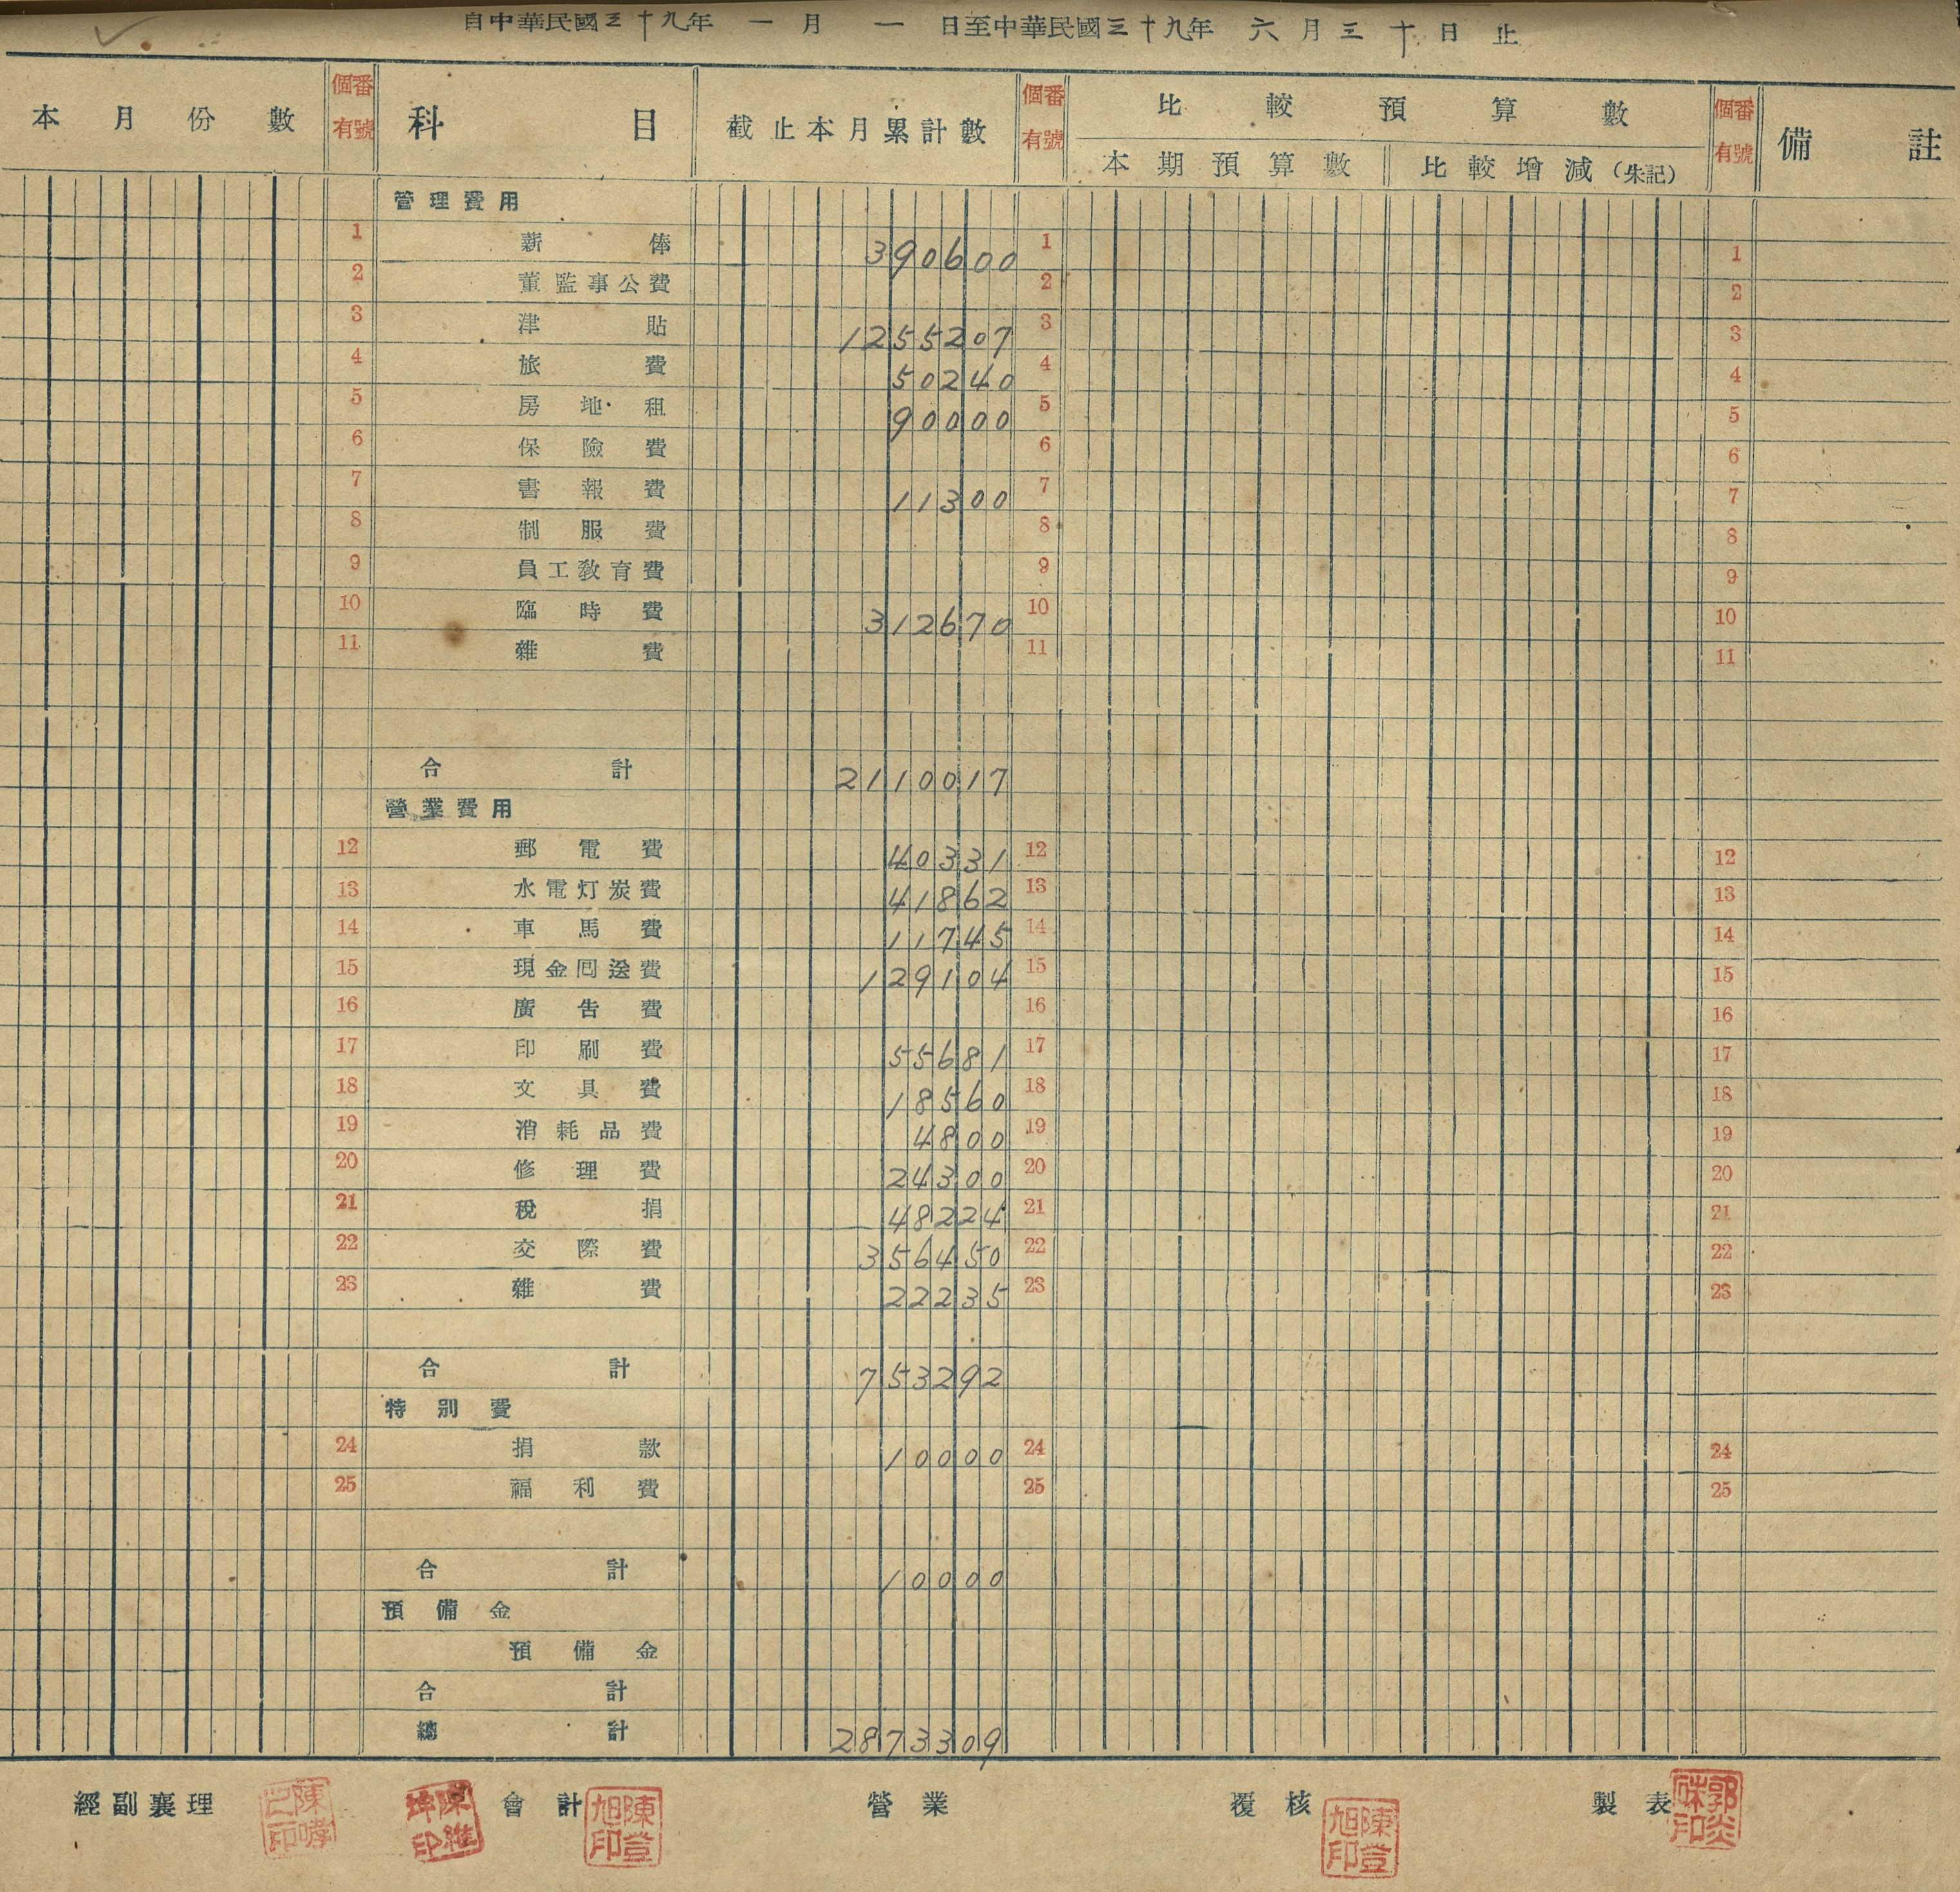 自中華民國三十九年 一 月 一 日至中華民國三十九年 六 月 三十 日 止
本月份數 個有番號 科目 截止本月累計數 個有番號 比較預算數 個有番號 備註
本期預算數 比較增減（朱記）
管理費用
1 薪俸 390600 1 1
2 董監事公費 2 2
3 津貼 1255207 3 3
4 旅費 50240 4 4
5 房地租 90000 5 5
6 保險費 6 6
7 書報費 11300 7 7
8 制服費 8 8
9 員工敎育費 9 9
10 臨時費 312670 10 10
11 雜費 11 11
合計 2110017
營業費用
12 郵電費 40331 12 12
13 水電灯炭費 41862 13 13
14 車馬費 11745 14 14
15 現金囘送費 129104 15 15
16 廣告費 16 16
17 印刷費 55681 17 17
18 文具費 18560 18 18
19 消耗品費 4800 19 19
20 修理費 24300 20 20
21 稅捐 48224 21 21
22 交際費 356450 22 22
23 雜費 22235 23 23
合計 753292
特別費
24 捐款 10000 24 24
25 福利費 25 25
合計 10000
預備金
預備金
合計
總計 2873309
經副襄理 會計 陳登旭印 營業 覆核 陳登旭印 製表